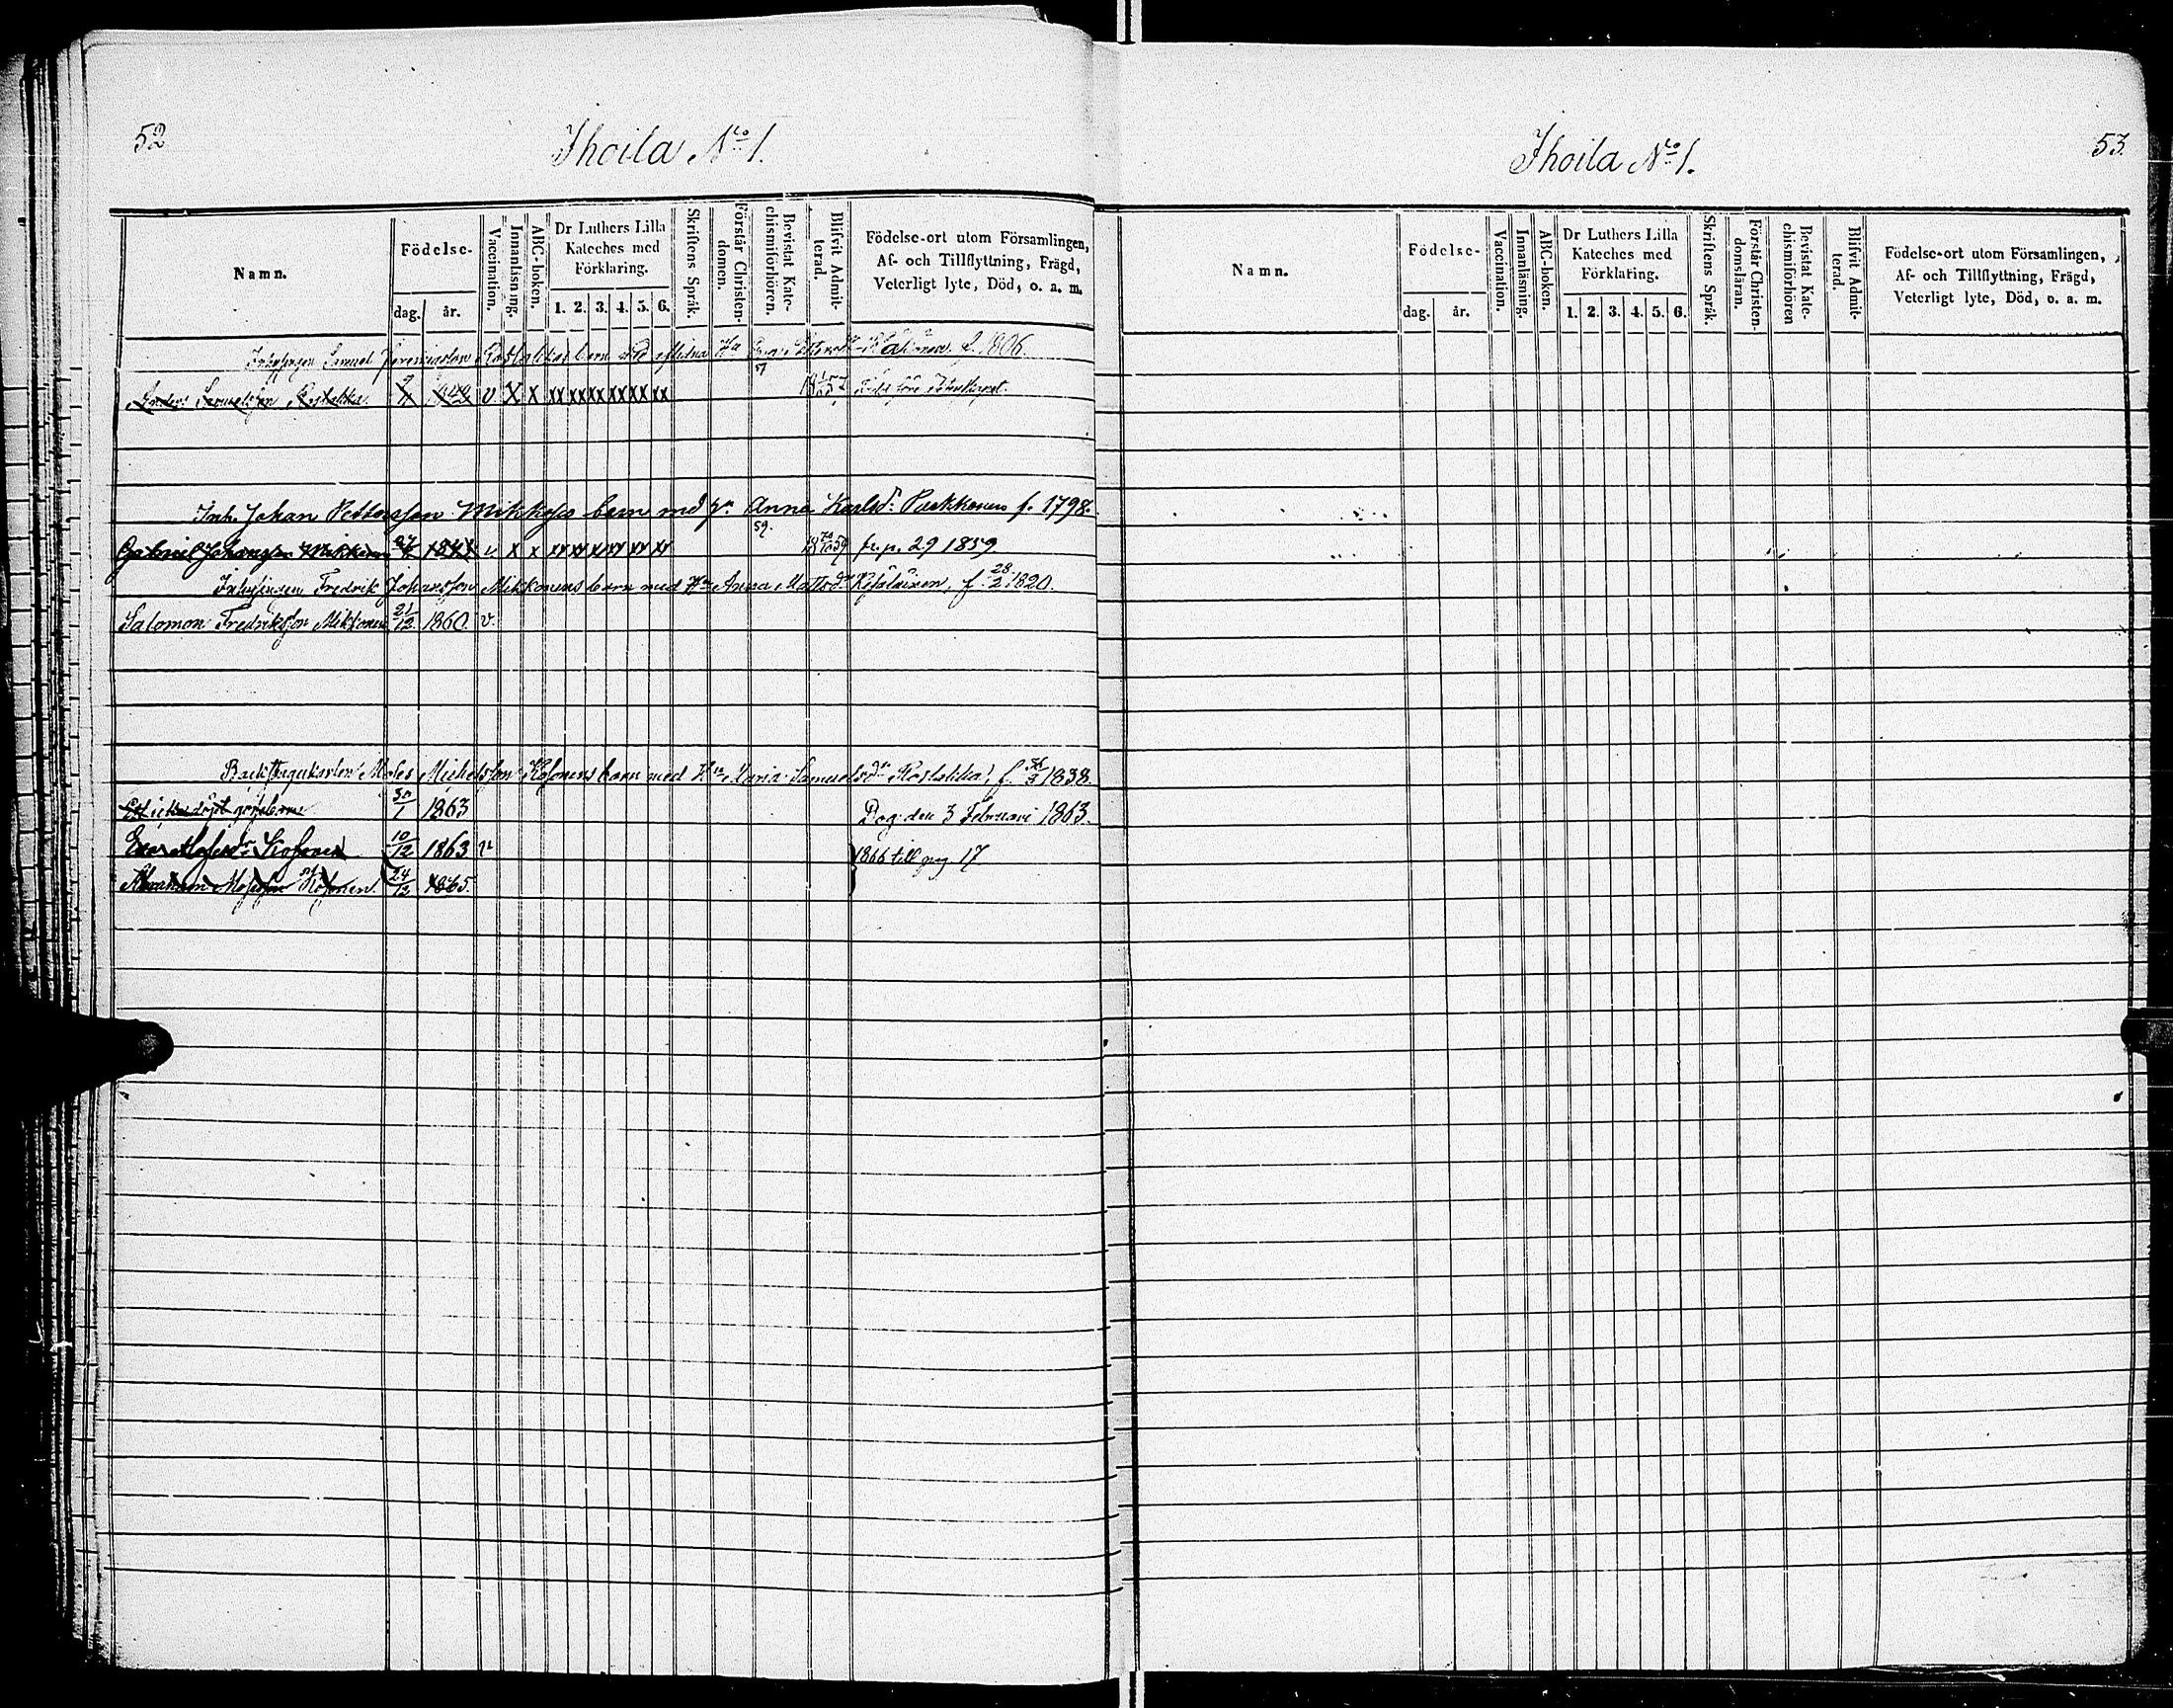 52
Ihoila No 1.
Namn.
Födelse-
dag.
år.
Vaccination.
Innanläsning.
ABC-boken.
Dr Luthers Lilla
Kateches med
Förklaring.
1. 2. 3. 4. 5. 6.
Skriftens Språk.
Förstår Christen-
domen.
Bevistat Kate-
chismiförhören.
Blifvit Admit-
terad.
Födelse-ort utom Församlingen,
Af- och Tillflyttning, Frägd,
Veterligt lyte, Död, o. a. m.
Samuel barn f. 1806.
57
Anders Samuelsson v X x xx xx xx xx xx xx
Inh. Johan Pettersson Mikkoses barn med Hn. Anna Karlsdr. Parkkonen f. 1798.
59.
Gabriel Johansson Mikkonen v. x x xx xx xx xx xx xx fr. p. 29 1859.
Inhysingen Fredrik Johansson Mikkonens barn med Hn Anna Mattsdr f. 28/2 1820.
Salomon Fredriksson Mikkonen 21/12 1860. v.
Moses Michelsson Kosonens barn med Hn Maria Samuelsdr 1838.
Ett icke döpt gossebarn 30/1 1863 Dog den 3 Februari 1863.
Eva Mosesdr Kosonen 10/12 1863 v 1866 till pag. 17
Abraham Mosesson Kosonen. 24/12 1865.
Ihoila No 1.
53.
Namn.
Födelse-
dag.
år.
Vaccination.
Innanläsning.
ABC-boken.
Dr Luthers Lilla
Kateches med
Förklaring.
1. 2. 3. 4. 5. 6.
Skriftens Språk.
Förstår Christen-
domsläran.
Bevistat Kate-
chismiförhören
Blifvit Admit-
terad.
Födelse-ort utom Församlingen,
Af- och Tillflyttning, Frägd,
Veterligt lyte, Död, o. a. m.